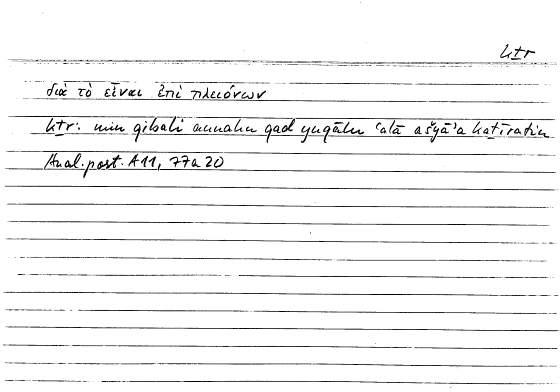 kṯr
διὰ τὸ εἶναι ἐπὶ πλειόνων
kṯr: min qibali annahu qad yuqālu ʿalā ašyāʾa kaṯīratin
Anal. post. A 11, 77a20